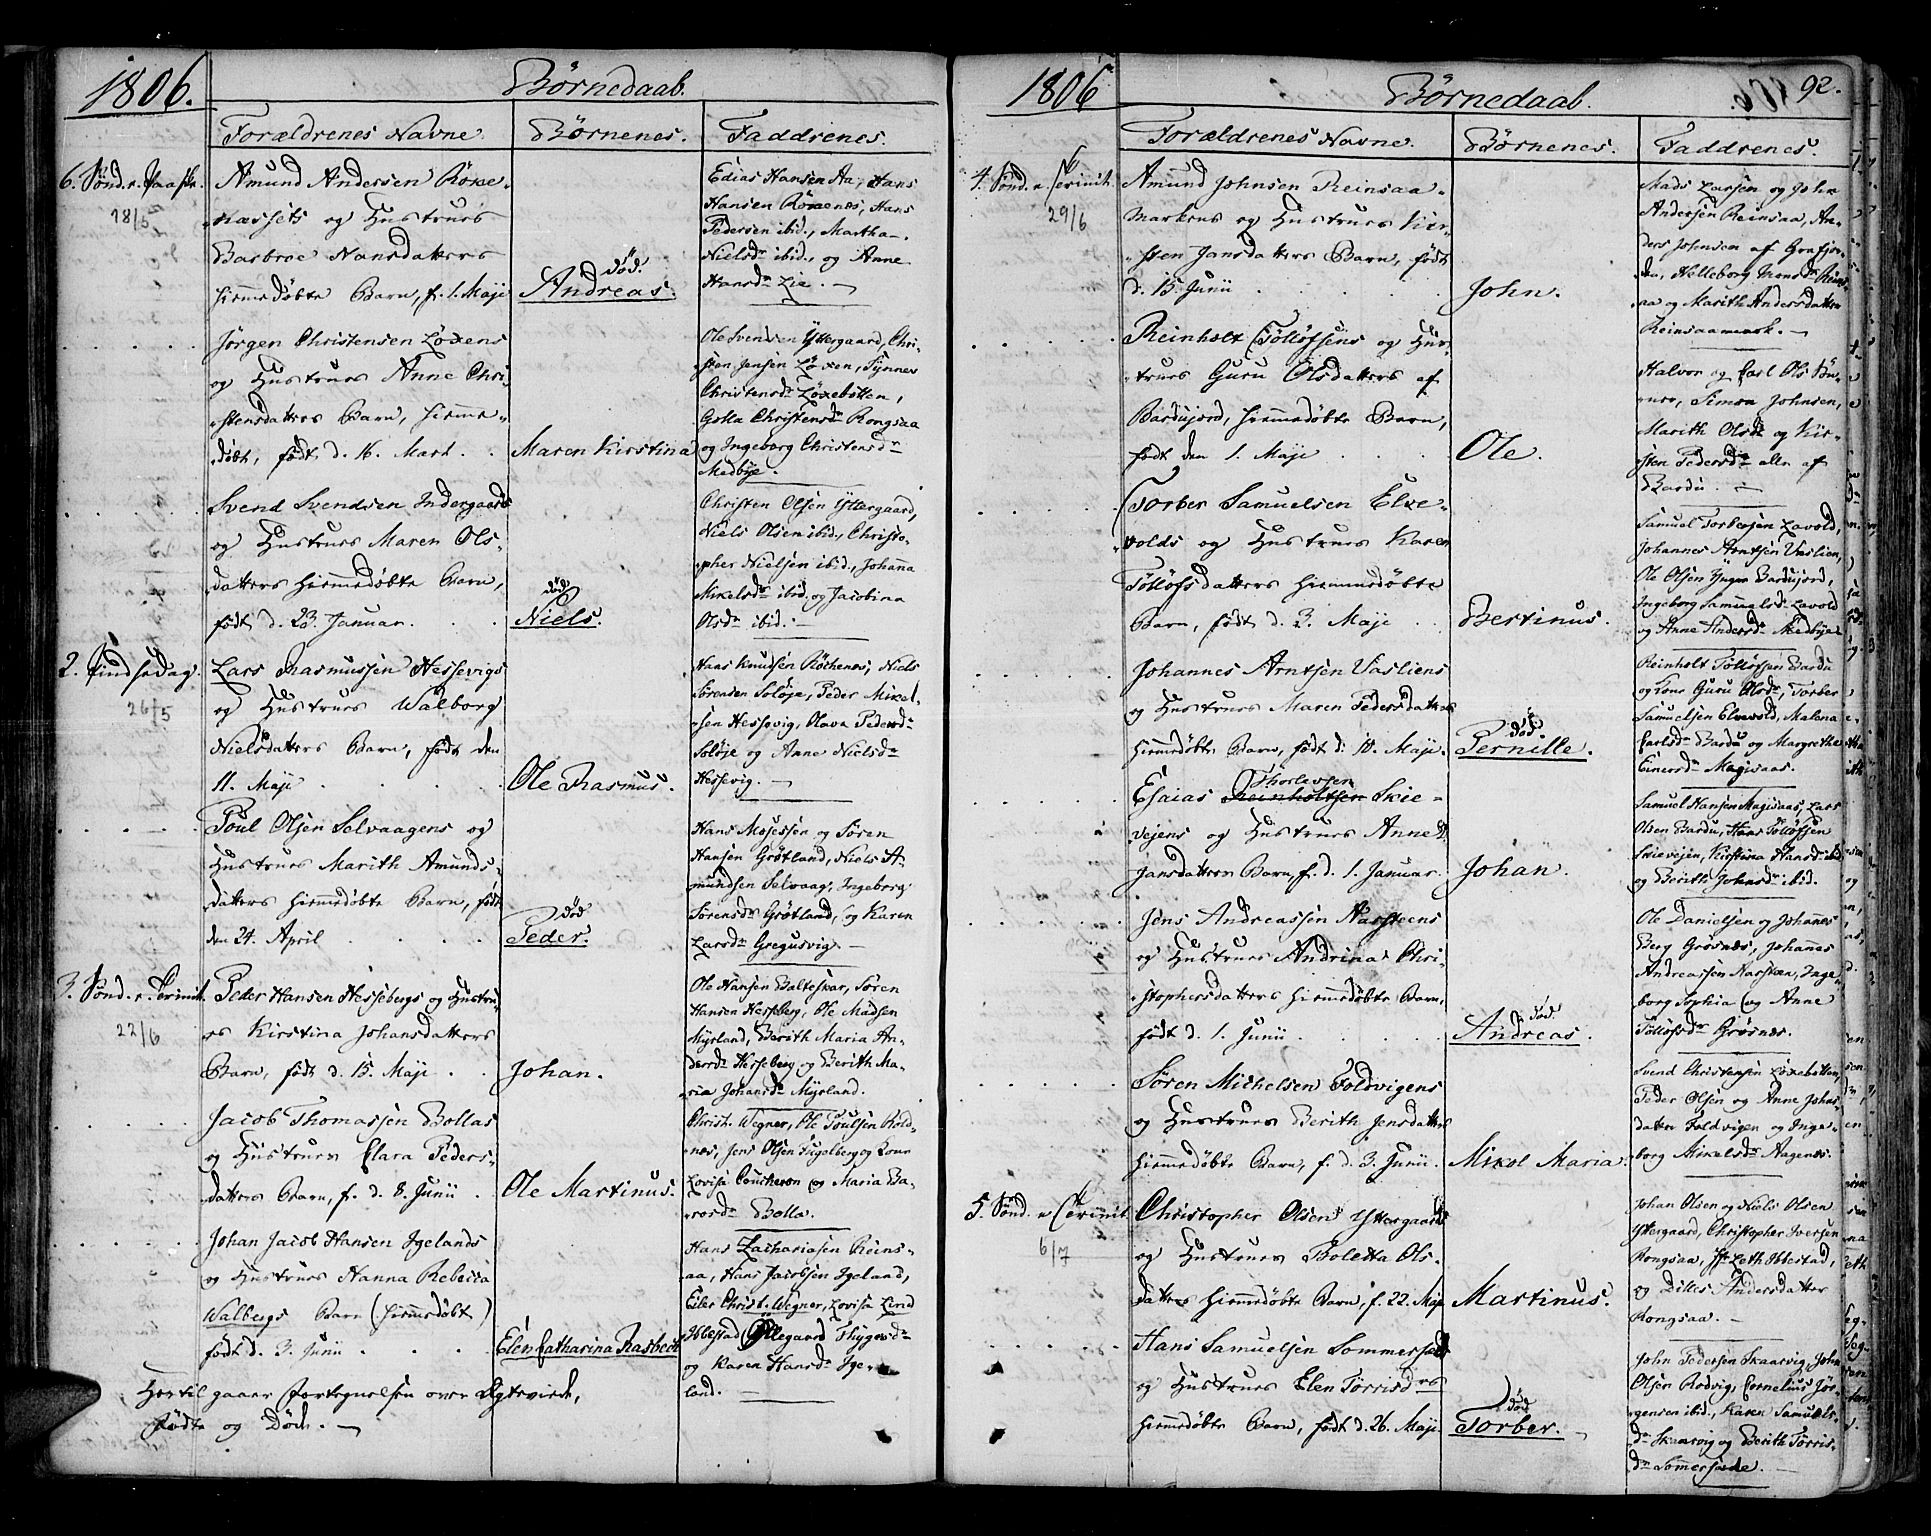 1806.
Børnedaab.
Forældrenes Navne.
Børnenes.
Faddrenes.
6. Sønd. e. Paaske.
18/5
Amund Andersen Röxe-
næssets og Hustrues
Barbroe Hansdatters
hiemmedøbte Barn, f. 1. Maji
død.
Andreas.
Edias Hansen Aa, Hans
Hansen Röxenes, Hans
Pedersen ibid., Martha
Nielsdr ibid., og Anne
Hansdr Lie. —
Jørgen Christensen Löxens
og Hustrues Anne Chri-
stensdatters Barn, hiemme-
døbt, født d. 16. Mart. . .
Maren Kirstina
Ole Svendsen Yttergaard, Chri-
sten Jensen Löxen, Synnev
Christensdr Löxebotten,
Goka Christensdr Rongsaa
og Ingeborg Christensdr
Medbÿe.
Svend Svendsen Indergaards
og Hustrues Maren Ols-
datters hiemmedøbte Barn,
født d. 23. Januar. . .
død
Niels.
Christen Olsen Yttergaard,
Niels Olsen ibid., Christo-
pher Nielsen ibid., Johanna
Mikelsdr ibid. og Jacobina
Olsdr ibid. —
2. Pindsedag.
26/5
Lars Rasmussen Hessevigs
og Hustrues Walborg
Nielsdatters Barn, født den
11. Maji . . .
Ole Rasmus.
Hans Knudsen Röchenes, Niels
Sörensen Soløje, Peder Mikel-
sen Hessevig, Olava Pedersdr
Soløje og Anne Nielsdr
Hessevig. —
Poul Olsen Selvaagens og
Hustrues Marith Amunds-
datters hiemmedøbte Barn, født
den 24. April . . .
død
Peder.
Hans Mosessen og Sören
Hansen Grøtland, Niels A-
mundsen Selvaag, Ingeborg
Sörensdr Grøtland, og Karen
Larsdr Gregusvig. —
3. Sönd. e. Trinit.
22/6
Peder Hansen Hessebergs og Hustru-
es Kirstina Johansdatters
Barn, født d. 15. Maji . .
Johan.
Ole Hansen Balteskar, Sören
Hansen Hesseberg, Ole Madsen
Myrland, Berith Maria An-
dersdr Hesseberg og Berith Ma-
ria Johansdr Myrland.
Jacob Thomassen Bollas
og Hustrues Clara Peders-
datters Barn, f. d. 8. Junii .
Ole Martinus.
Christ. Wegner, Ole Poulsen Rold-
næs, Jens Olsen Fugelberg og Kone
Lovisa Coucheron og Maria Ba-
rosdr Bolla.
Johan Jacob Hansen Igelands
og Hustrues Hanna Rebecca
Walbergs Barn (hiemmedøbt)
født d. 3. Junii . . .
Elen Catharina Rasbech
Hans Zachariasen Reins-
aa, Hans Jacobsen Igeland,
Eiler Christ. Wegner, Lovisa Lind
Ibbestad, Øllegaard Thygesdr
og Karen Hansdr Ige-
land. —
Hertil gaaer Fortegnelsen over Ægteviede,
Fødte og Døde. —
1806
Børnedaab.
92.
Forældrenes Navne.
Børnenes.
Faddrenes.
4. Sønd. e. Trinit.
29/6
Amund Johnsen Reinsaa-
markens og Hustrues Kir-
sten Jansdatters Barn, født
d. 15. Junii . . .
John.
Mads Larsen og John
Andersen Reinsaa, An-
ders Johnsen af Gratfjor-
den, Helleborg Monsdr Reins-
aa og Marith Andersdatter
Reinsaamark. —
Reinholt Tølløfsens og Hus-
trues Guru Olsdatters af
Bardujord, hiemmedøbte Barn,
født den 1. Maji . . .
Ole.
Halvor og Carl Ols Sön-
ner, Simon Johnsen,
Marith Olsdr og Kir-
sten Pedersdr alle af
Bardu. —
Torber Samuelsen Elve-
volds og Hustrues Karen
Tølløfsdatters hiemmedøbte
Barn, født d. 3. Maji . .
Bertinus.
Samuel Torbersen Lavold,
Johannes Arntsen Vaslien,
Ole Olsen Yngre Bardujord,
Ingeborg Samuelsdr Lavold
og Anne Andersdr Medbÿe
Johannes Arntsen Vasliens
og Hustrues Maren Pedersdatters
hiemmedøbte Barn, født d. 10. Maji.
død.
Pernille.
Reinholt Tølløfsen Bardu
og Kone Guru Olsdr, Torber
Samuelsen Elvevold, Malena
Carlsdr Bardu og Margrethe
Einersdr Magisaas.
Esaias Reinholtsen Thorlevsen Skie-
vejens og Hustrues Anne
Jansdatters Barn, f. d. 1. Januar.
Johan.
Samuel Hansen Magisaas, Lars
Olsen Bardu, Hans Tølløfsen
Skievejen, Kirstina Hansdr ibid.
og Berith Johnsdr ibid.
Jens Andreassen Narsteens
og Hustrues Andrinas Chri-
stophersdatters hiemmedøbte Barn,
født d. 1. Junii . . .
død.
Andreas.
Ole Danielsen og Johannes
Berg Grøsnæs, Johannes
Andreassen Narsteen, Inge-
borg Sophia og Anne
Tølløfsdr Grøsnæs.
Søren Michelsen Foldvigens
og Hustrues Berith Jensdatters
hiemmedøbte Barn, f. d. 3. Junii.
Mikal Maria.
Svend Christensen Löxebotten,
Peder Olsen og Anne Johans-
datter Foldvigen og Inge-
borg Mikelsdr Aagenes.
5. Sønd. e. Trinit.
6/7
Christopher Olsen Yttergaards
og Hustrues Boletta Ols-
datters hiemmedøbte Barn, f. 22. Maji
Martinus.
Johan Olsen og Niels Olsen
Yttergaard, Christopher Iversen
Rongsaa, Jfr Leth Ibbestad,
og Dilles Andersdatter
Rongsaa. —
Hans Samuelsen Sommersæts
og Hustrues Elen Tørrisdrs
hiemmedøbte Barn, født d. 26. Maji
død
Torber.
John Pedersen Skaarvig, John
Olsen Rodvig, Cornelius Jör-
gensen ibid., Karen Samuels-
dr Skaarvig og Berith Tørris-
dr Sommersæde. —